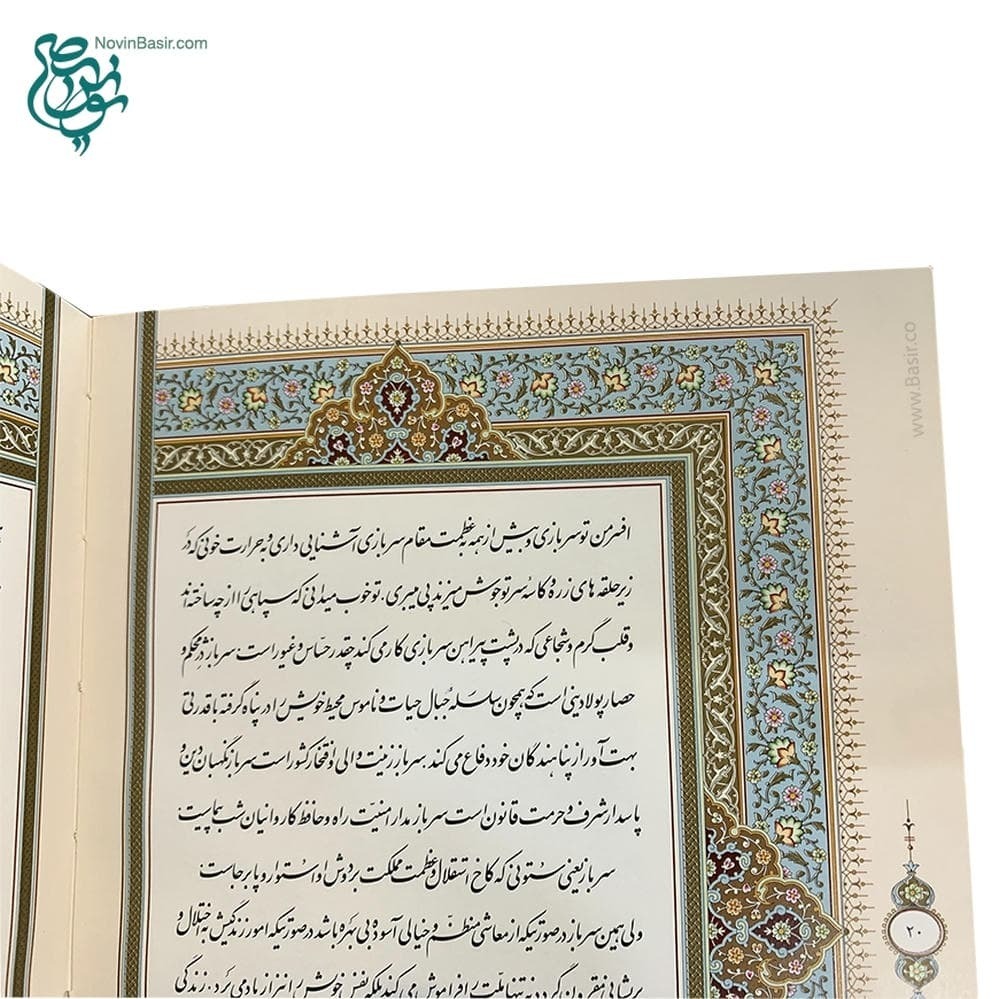 NovinBasir.com
نوین بصیر
www.Basir.co
افسر من تو سربازی و بیش از همه به عظمت مقام سربازی آشنایی داری و به حرارت خونی که در
زیر حلقه های زره و کاسه سر تو جوش میزند پی میبری. تو خوب میدانی که سپاهی را از چه ساخته اند
و قلب گرم و شجاعی که در پشت پیراهن سربازی کار می کند چقدر حساس و غیور است سرباز دژ محکم و
حصار پولادینی است که همچون سلسله جبال حیات و ناموس محیط خویش را در پناه گرفته با قدرتی
بهت آور از پناهندگان خود دفاع می کند. سرباز زینت والی و افتخار کشور است سرباز نگهبان دین و
پاسدار شرف و حرمت قانون است سرباز مدار امنیّت راه و حافظ کاروانیان شب پیماست:
سرباز یعنی ستونی که کاخ استقلال و عظمت مملکت بر دوش او استوار و پابرجاست
ولی همین سرباز در صورتیکه از معاشی منظّم و خیالی آسوده بی بهره باشد در صورتیکه امور زندگیش به اختلال و
پریشانی نه تنها ملت را فراموش می کند بلکه نفس خویش را نیز از یاد می برد. زندگی
۲۰